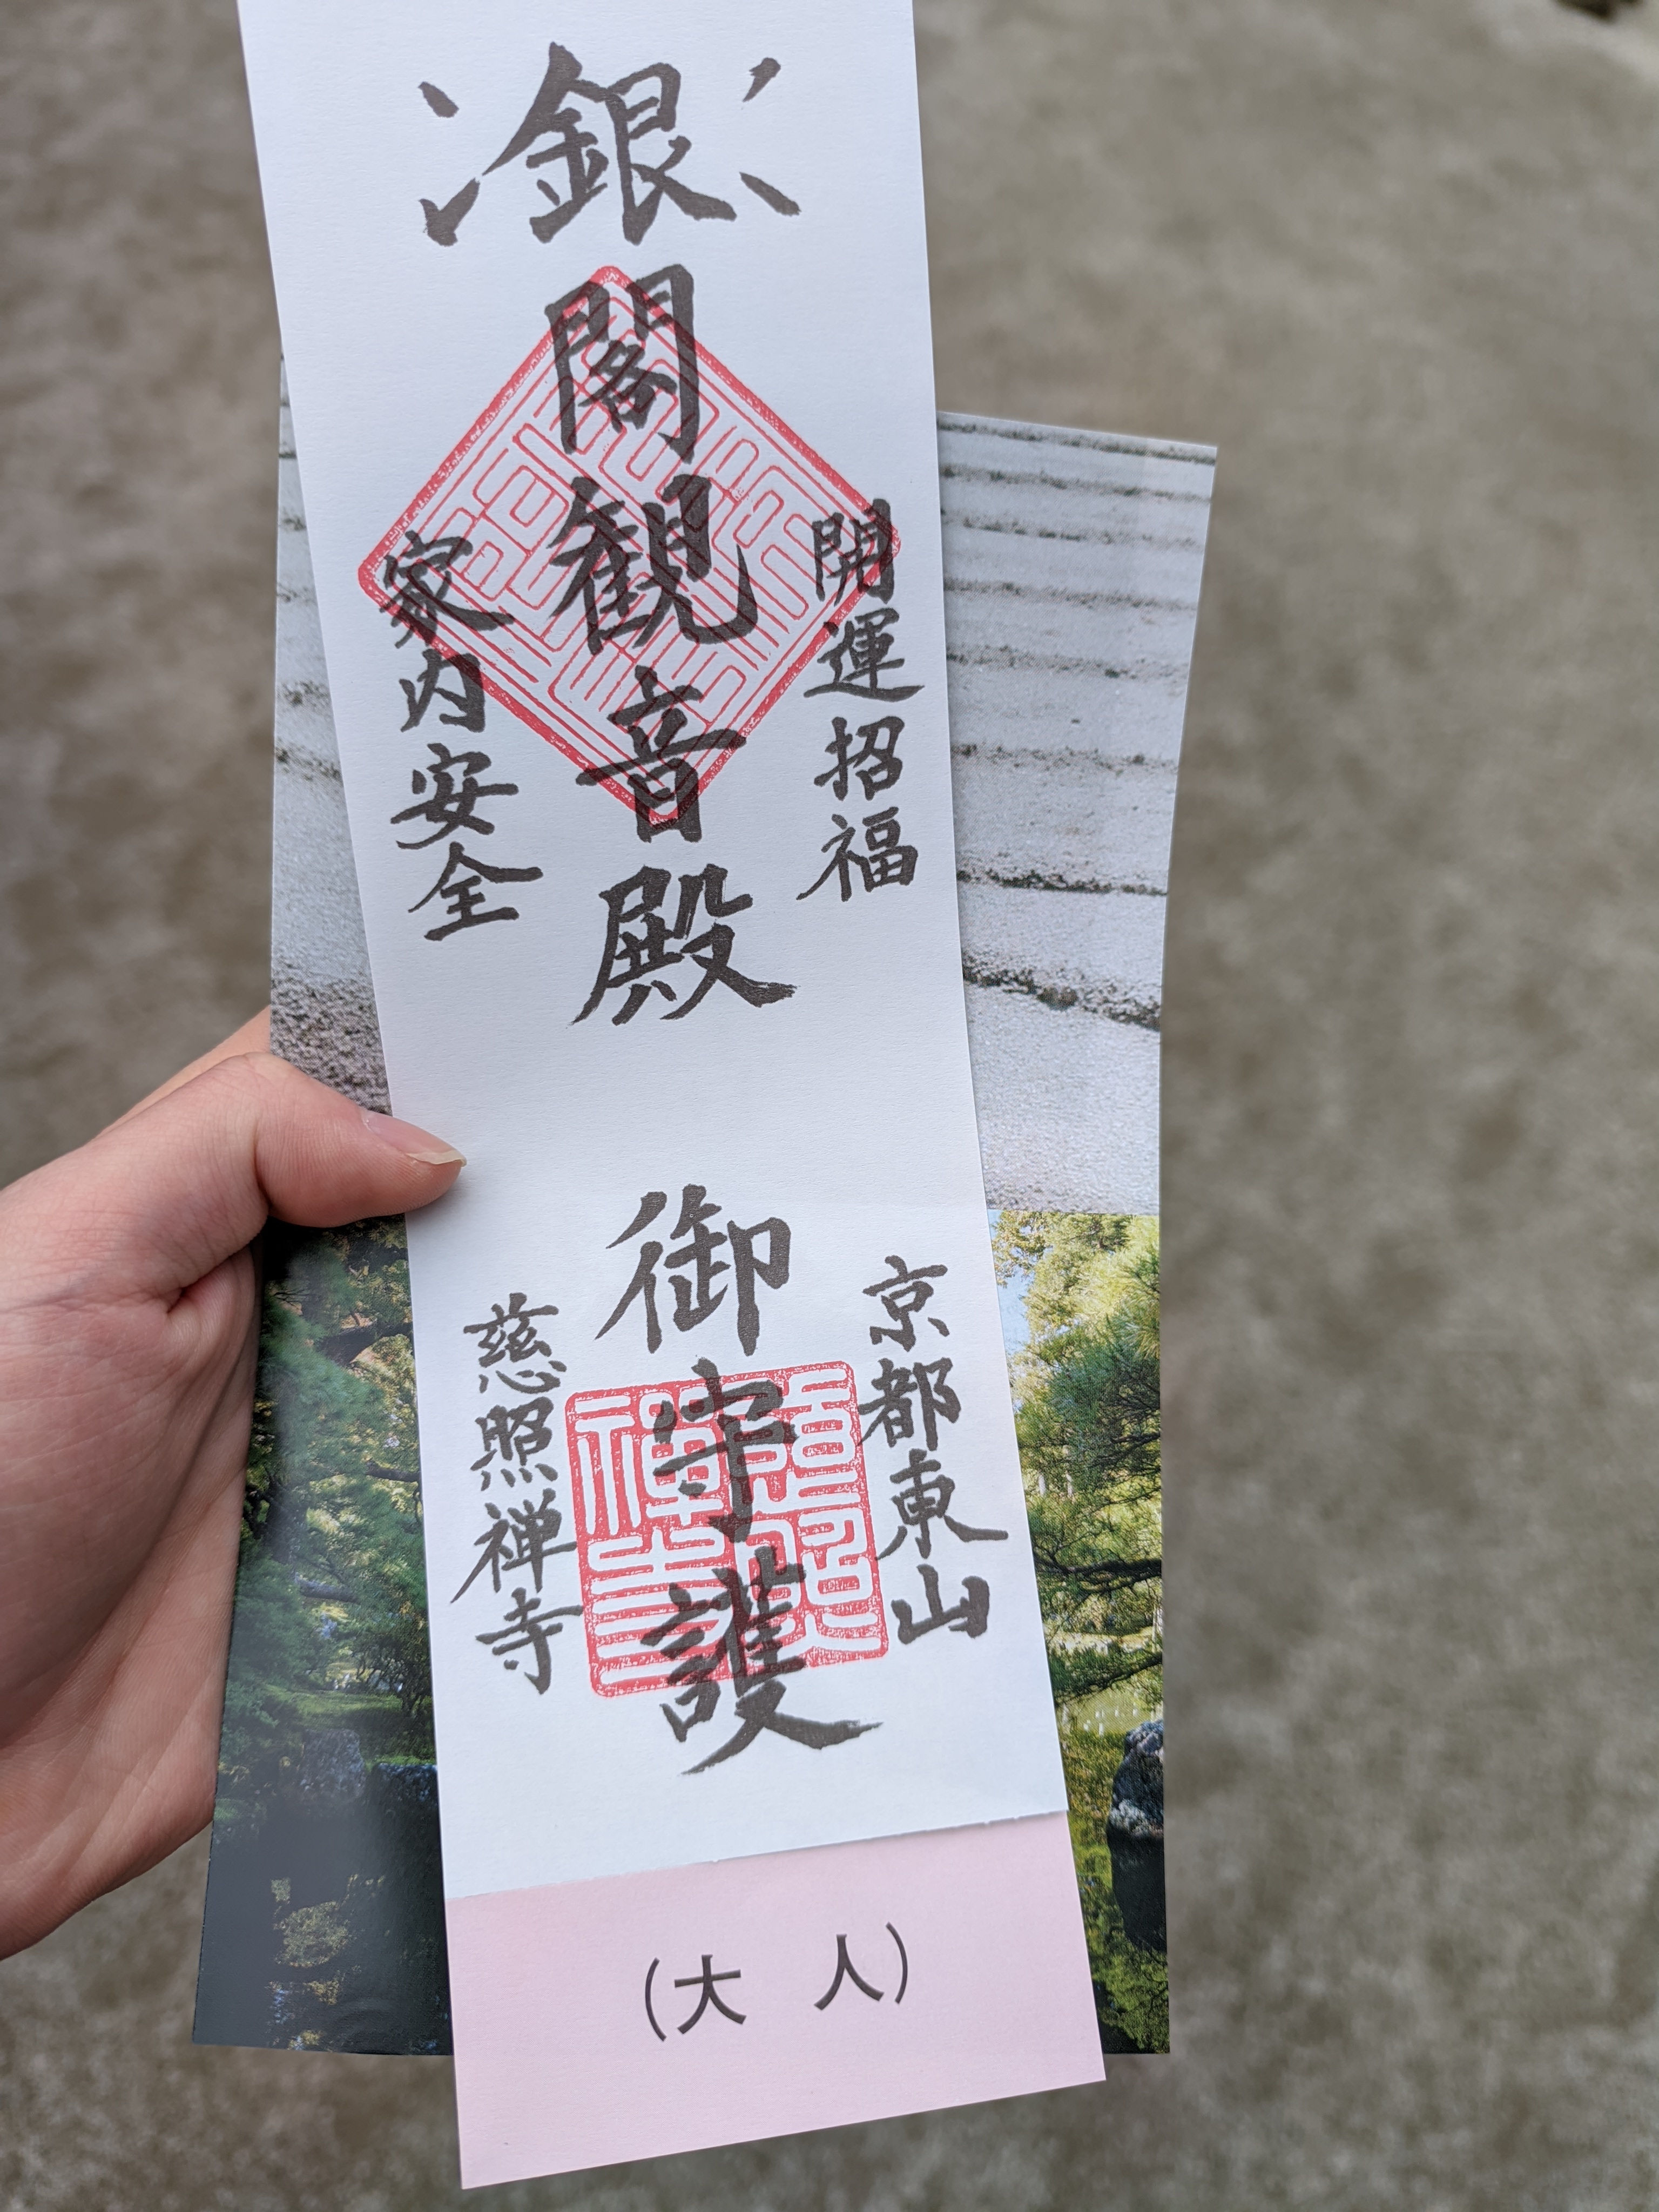 開運招福
銀閣観音殿
家内安全
京都東山
御守護
慈照禅寺
慈照禅寺
(大 人)